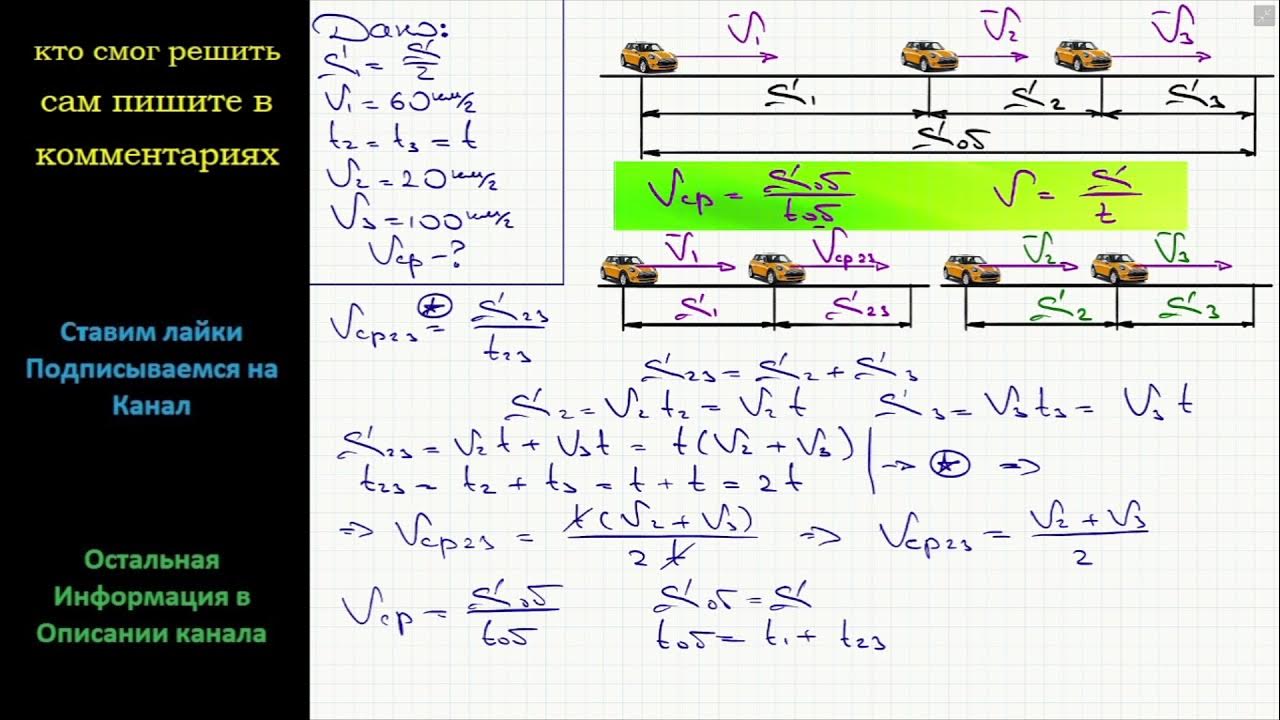 кто смог решить
сам пишите в
комментариях
Ставим лайки
Подписываемся на
Канал
Остальная
Информация в
Описании канала
Дано:
S₁ = S/2
V₁ = 60 км/г
t₂ = t₃ = t
V₂ = 20 км/г
V₃ = 100 км/г
Vср - ?
V₁ V₂ V₃
S₁ S₂ S₃
Sоб
Vср = Sоб/tоб V = S/t
V₁ Vср23 V₂ V₃
S₁ S₂₃ S₂ S₃
Vср23 = S₂₃/t₂₃
S₂₃ = S₂ + S₃
S₂ = V₂ t₂ = V₂ t S₃ = V₃ t₃ = V₃ t
S₂₃ = V₂ t + V₃ t = t (V₂ + V₃)
t₂₃ = t₂ + t₃ = t + t = 2 t → ★ ⇒
⇒ Vср23 = t (V₂ + V₃)/2 t ⇒ Vср23 = V₂ + V₃/2
Vср = Sоб/tоб Sоб = S
tоб = t₁ + t₂₃